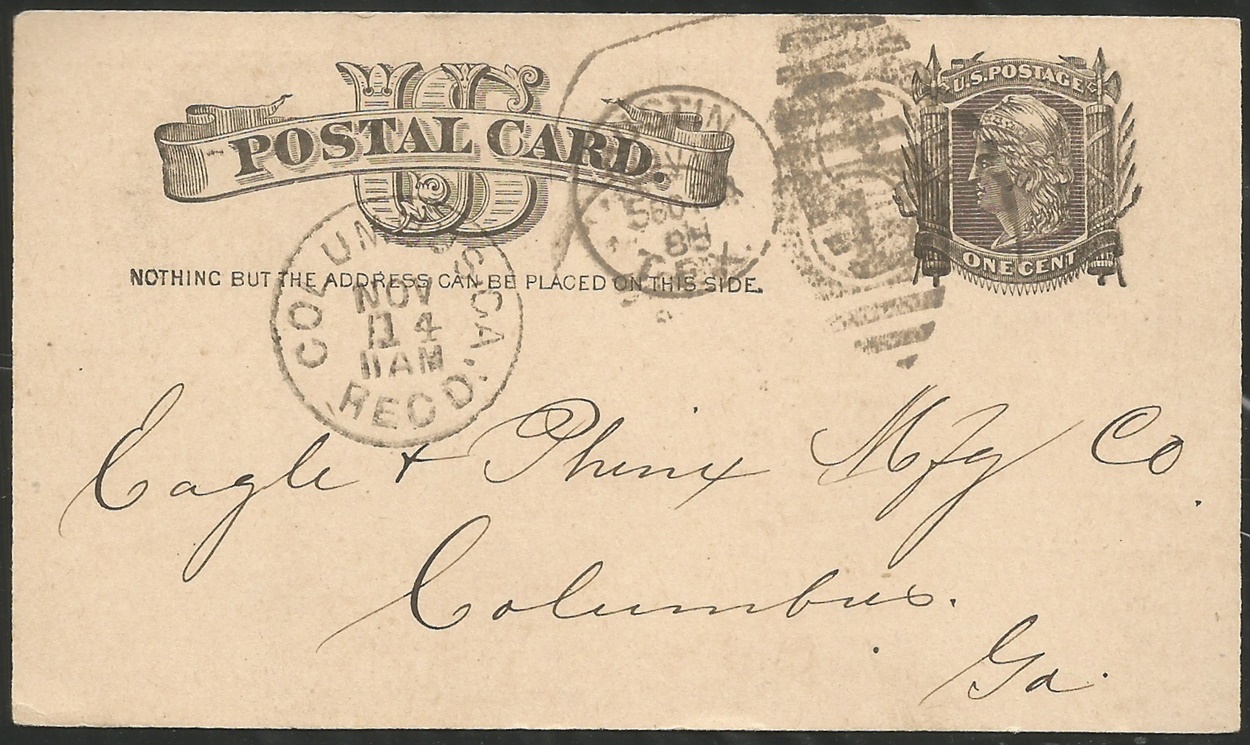 US
POSTAL CARD.
U.S. POSTAGE
ONE CENT
NOTHING BUT THE ADDRESS CAN BE PLACED ON THIS SIDE.
AUSTIN
TEX
COLUMBUS, GA.
NOV
14
11 AM
REC'D.
Eagle & Phenix Mfg Co.
Columbus.
Ga.